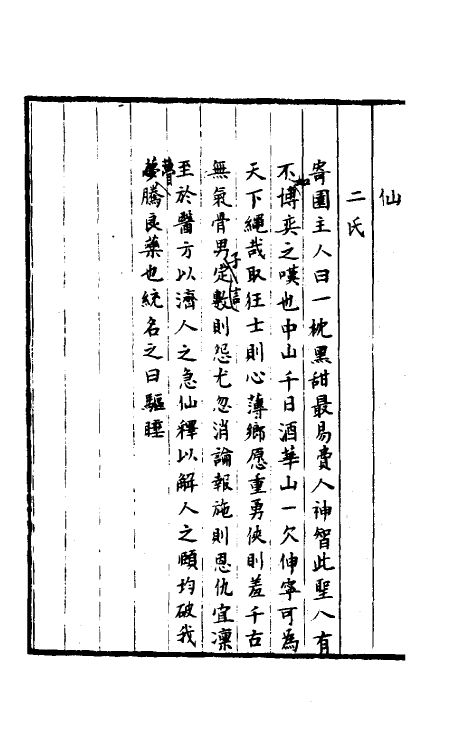 仙
二氏
寄園主人曰一枕黑甜最易費人神智此聖人有
不如博奕之嘆也中山千日酒華山一欠伸寧可為
天下繩哉取狂士則心薄鄉愿重勇俠則羞千古
無氣骨男子定信數則怨尤忽消論報施則恩仇宜凜
至於醫方以濟人之急仙釋以解人之頤均破我
瞢騰良藥也統名之曰驅睡